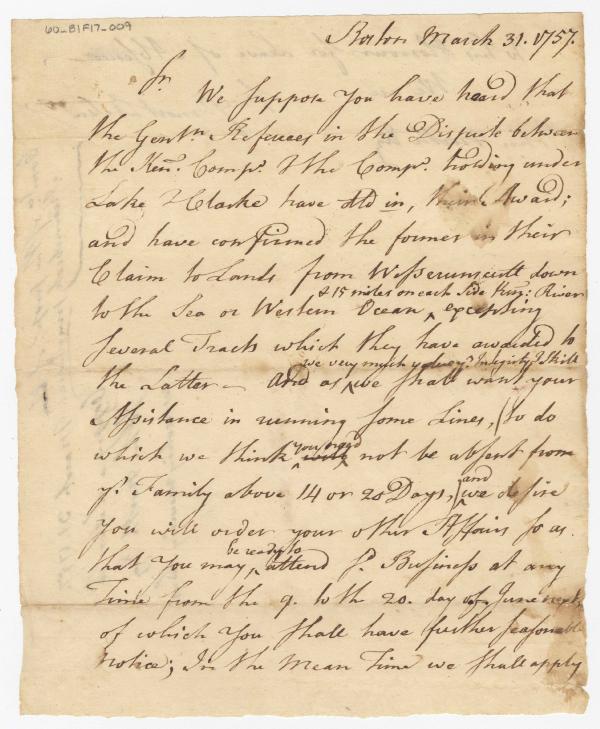 60_B1F17_009
Boston March 31. 1757.
Sr.
We suppose You have heard that
the Gentn. Referees in the Dispute between
the Ken: Compy. & the Compy. holding under
Lake & Clarke have in, their Award;
and have confirmed the former in their
Claim to Lands from Wesserunscutt down
& 15 miles on each Side Ken: River
to the Sea or Western Ocean ‸ excepting
Several Tracts which they have awarded to
we very much value yr. Integrity & Skill
the Latter — And as ‸ we shall want your
Assistance in running some Lines, (to do
you need
which we think ‸ will not be absent from
and
yr. Family above 14 or 20 Days, ‸ we desire
You will order your other Affairs so as
be ready to
that You may, ‸ attend sd. Business at any
Time from the 9. to the 20. day of June next,
of which You shall have further seasonable
notice; In the Mean Time we shall apply